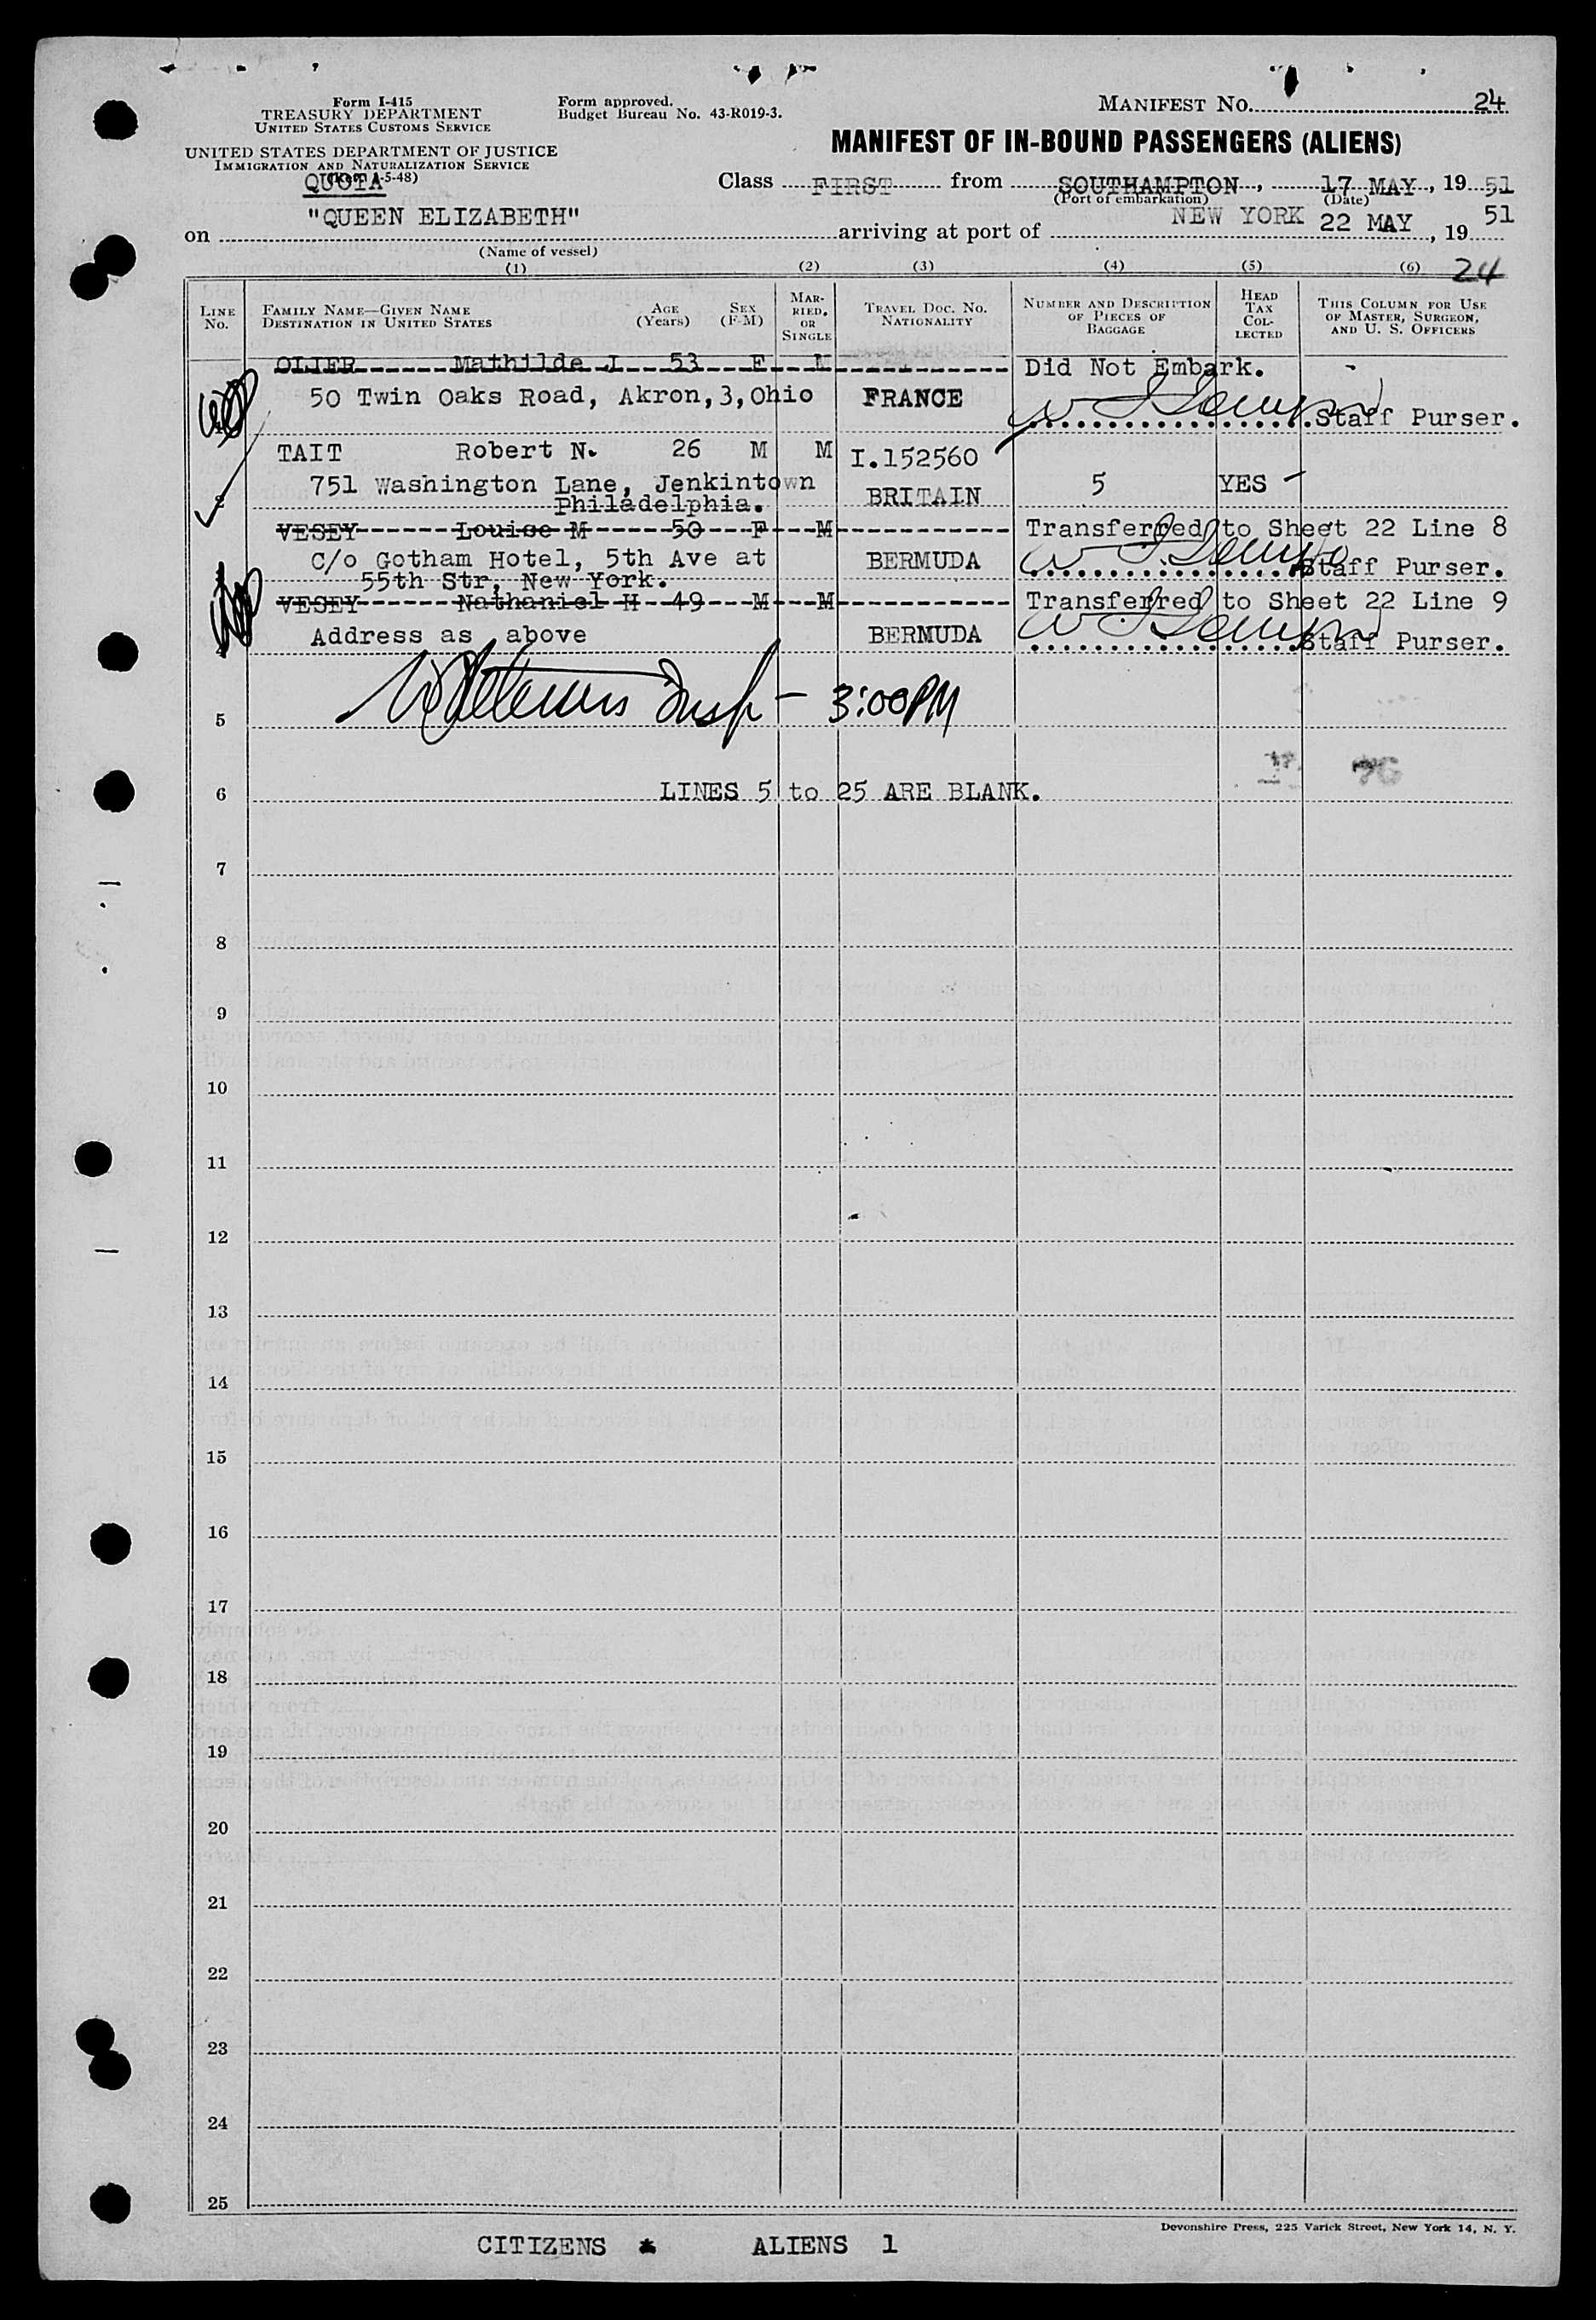 Form I-415
TREASURY DEPARTMENT
UNITED STATES CUSTOMS SERVICE
UNITED STATES DEPARTMENT OF JUSTICE
IMMIGRATION AND NATURALIZATION SERVICE
QUOTA 5-48)
Form approved.
Budget Bureau No. 43-R019-3.
MANIFEST No. 24
MANIFEST OF IN-BOUND PASSENGERS (ALIENS)
Class FIRST from SOUTHAMPTON, 17 MAY, 19 51
(Port of embarkation) (Date)
on "QUEEN ELIZABETH" arriving at port of NEW YORK 22 MAY, 19 51
(Name of vessel)
(1) (2) (3) (4) (5) (6) 24
LINE No. FAMILY NAME—GIVEN NAME DESTINATION IN UNITED STATES AGE (Years) SEX (F-M) MARRIED, OR SINGLE TRAVEL DOC. NO. NATIONALITY NUMBER AND DESCRIPTION OF PIECES OF BAGGAGE HEAD TAX COLLECTED THIS COLUMN FOR USE OF MASTER, SURGEON, AND U. S. OFFICERS
OLIER Mathilde J 53 F M Did Not Embark. -
50 Twin Oaks Road, Akron,3,Ohio FRANCE Staff Purser.
TAIT Robert N. 26 M M I.152560
751 Washington Lane, Jenkintown BRITAIN 5 YES -
2 Philadelphia.
VESEY Louise M 50 F M Transferred to Sheet 22 Line 8
C/o Gotham Hotel, 5th Ave at BERMUDA Staff Purser.
55th Str, New York.
VESEY Nathaniel H 49 M M Transferred to Sheet 22 Line 9
Address as above BERMUDA Staff Purser.
Insp - 3:00PM
5
6 LINES 5 to 25 ARE BLANK.
7
8
9
10
11
12
13
14
15
16
17
18
19
20
21
22
23
24
25
Devonshire Press, 225 Varick Street, New York 14, N. Y.
CITIZENS * ALIENS 1